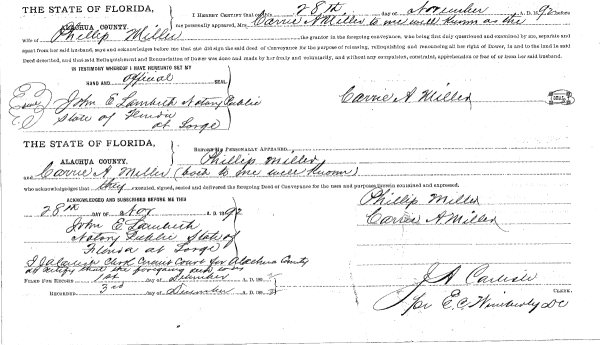 THE STATE OF FLORIDA,
ALACHUA COUNTY.
I HEREBY CERTIFY that on this 28th day of November A. D. 1892
me personally appeared, Mrs. Carrie A Miller to me well known as the
wife of Phillip Miller the grantor in the foregoing conveyance, who being duly questioned and examined by me, separate and
apart from her said husband, says and acknowledges before me that she did sign the said deed of Conveyance for the purpose of releasing, relinquishing and renouncing all her right of Dower, in and to the land in said
Deed described, and that said Relinquishment and Renunciation of Dower was done and made by her freely and voluntarily, and without any compulsion, constraint, apprehension or fear of or from her said husband.
IN TESTIMONY WHEREOF I HAVE HEREUNTO SET MY
HAND AND official SEAL
John E Lambeth Notary Public
State of Florida
at Large
Carrie A Miller
SEAL
THE STATE OF FLORIDA,
ALACHUA COUNTY.
BEFORE ME PERSONALLY APPEARED, Phillip Miller
and Carrie A. Miller (both to me well known)
who acknowledges that they executed, signed, sealed and delivered the foregoing Deed of Conveyance for the uses and purposes therein contained and expressed.
ACKNOWLEDGED AND SUBSCRIBED BEFORE ME THIS
28th DAY OF Nov A. D. 1892
John E Lambeth
Notary Public State of
Florida at Large
Phillip Miller
Carrie A Miller
I J A Carlisle Clerk Circuit Court for Alachua County
do certify that the foregoing deed was
FILED FOR RECORD 1st day of December A. D. 1892
RECORDED 3rd day of December A. D. 1892
J A Carlisle
CLERK.
per E. C. Wimberly DC